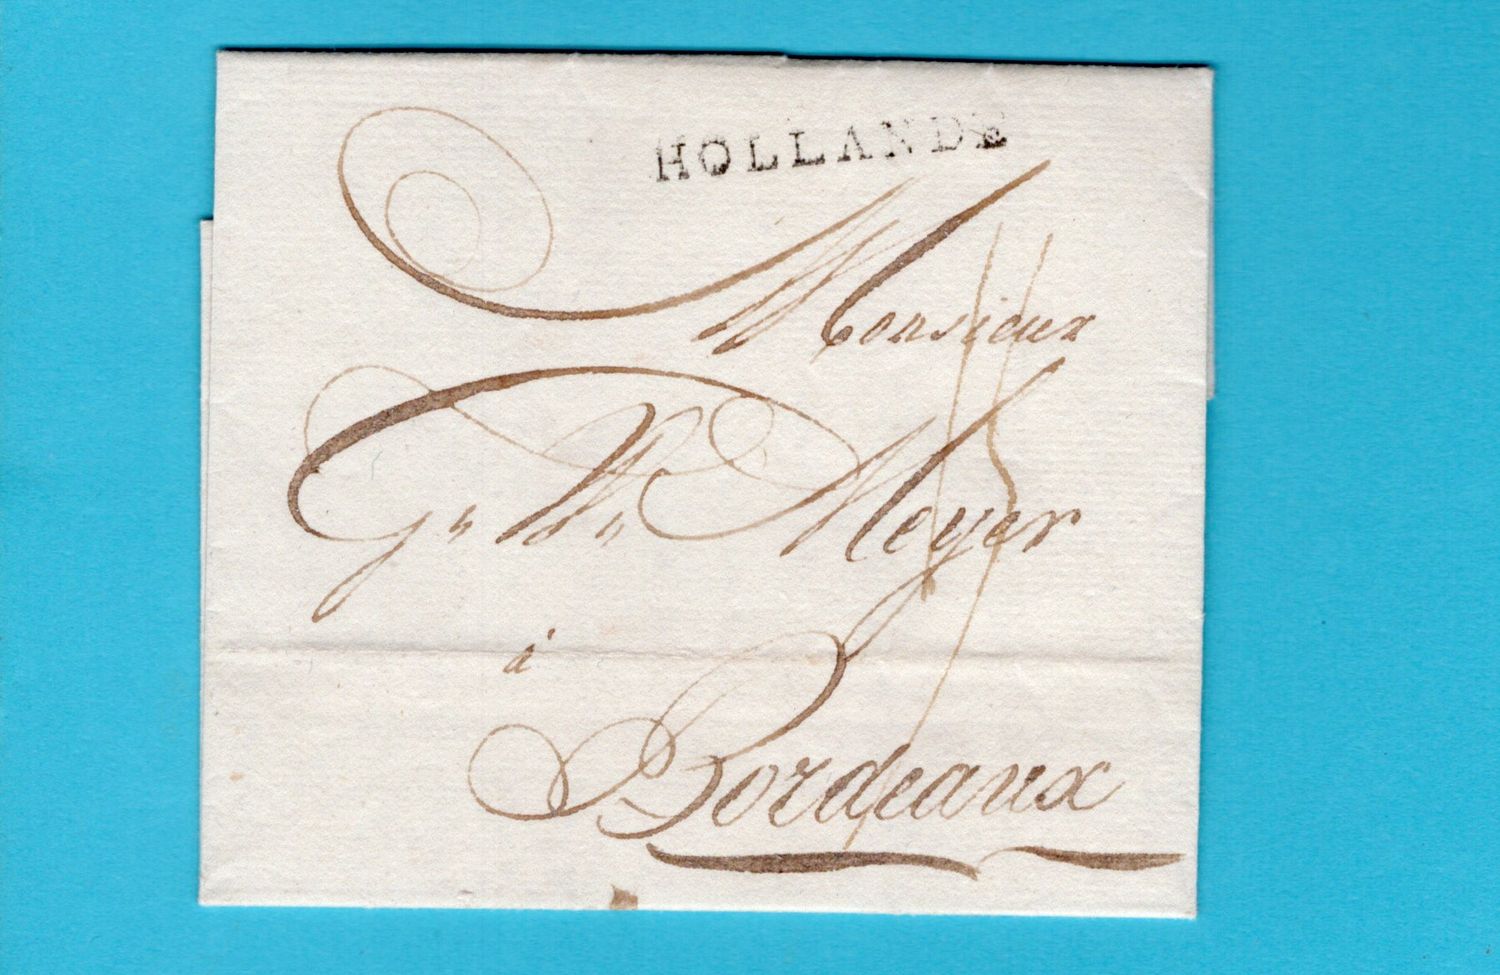 HOLLANDE
Monsieur
Meyer
à
Bordeaux